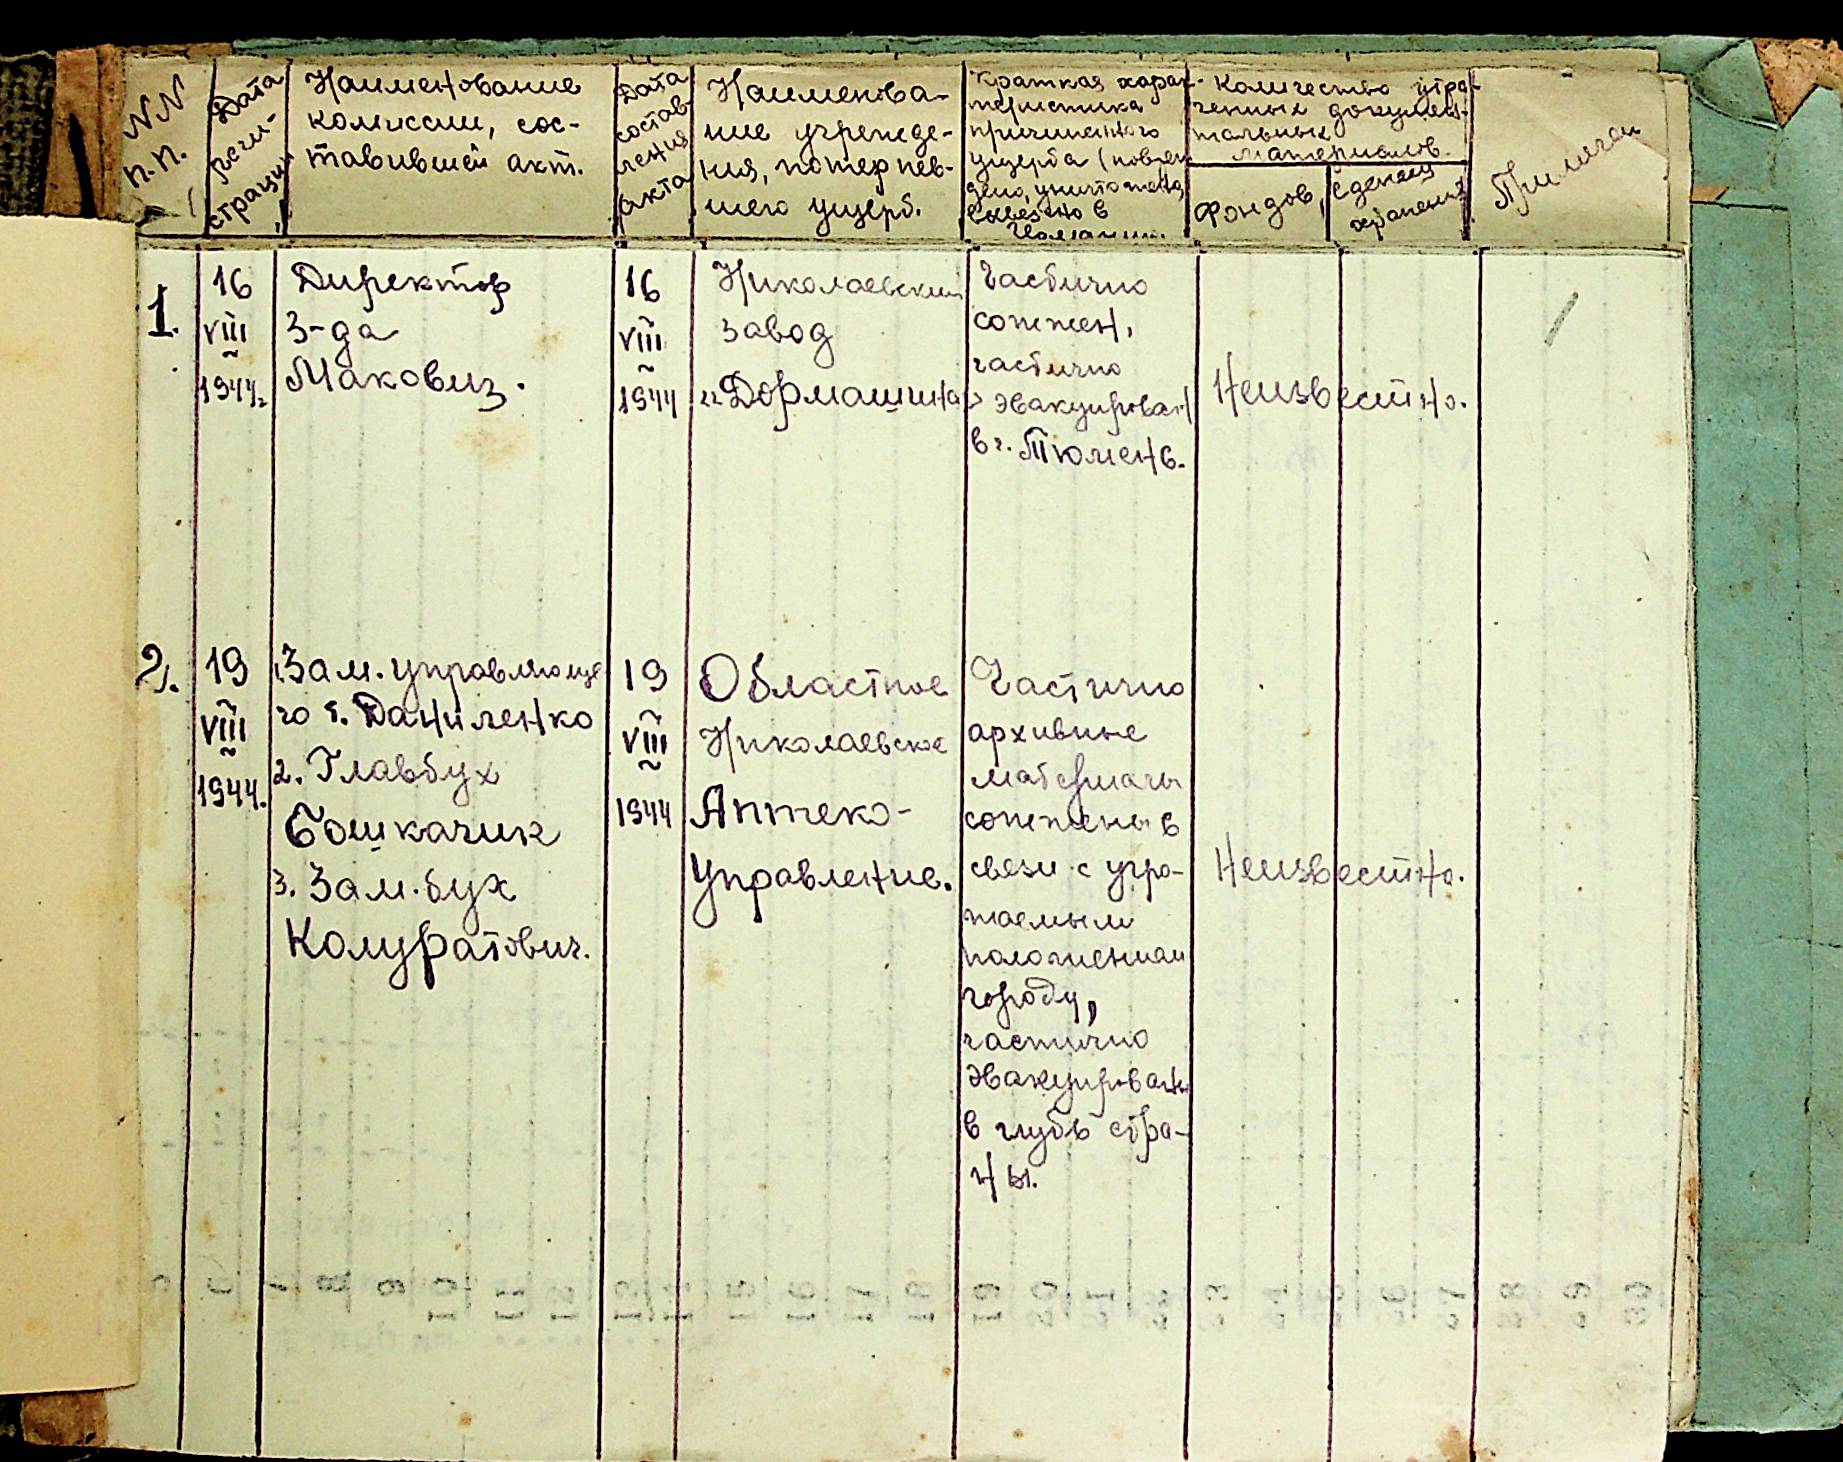 NN
п.п.
Дата
реги-
страции
Наименование
комиссии, сос-
тавившей акт.
Дата
состав
ления
акта
Наименова-
ние учрежде-
ния, потерпев-
шего ущерб.
Краткая харак-
теристика
причиненного
ущерба (повреж
дено, уничтожено,
вывезено в
Количество утра-
ченных докумен-
тальных
материалов.
Фондов,
Единиц
хранения
Примечан
1.
16
VIII
1944г
Директор
з-да
Маковиз.
16
VIII
1944
Николаевский
завод
"Дормашина"
Частично
сожжен,
частично
эвакуирован
в г. Тюмень.
Неизвестно.
2.
19
VIII
1944.
1. Зам. управляюще
го т. Даниленко
2. Главбух
Бошкачик
3. Зам. бух
Колуратович.
19
VIII
1944
Областное
Николаевское
Аптеко-
управление.
Частично
архивные
материалы
сожжены в
свези с угро-
жаемым
положением
городу,
частично
эвакуированы
в глубь стра-
ны.
Неизвестно.